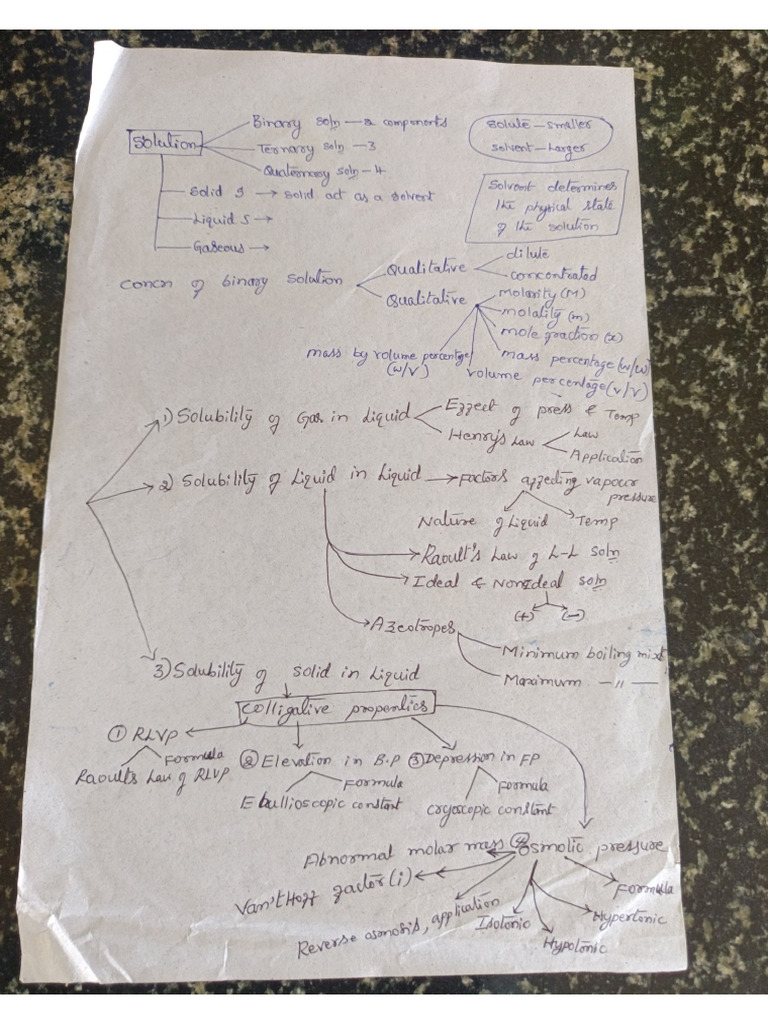 Solution
Binary soln — 2 components
Ternary soln — 3
Quaternary soln — 4
Solid S → Solid act as a solvent
Liquid S →
Gaseous →
Solute — smaller
Solvent — Larger
Solvent determines
the physical state
of the solution
Concn of binary solution
Qualitative
dilute
concentrated
Qualitative
Molarity (M)
molality (m)
mole fraction (x)
mass percentage (w/w)
volume percentage (v/v)
mass by volume percentage
(w/v)
1) Solubility of Gas in Liquid
Effect of press & Temp
Henry's Law
Law
Application
2) Solubility of Liquid in Liquid → Factors affecting vapour
pressure
Nature of Liquid
Temp
Raoult's Law of L-L soln
Ideal & NonIdeal soln
(+) (-)
Azeotropes
Minimum boiling mixt
Maximum — 〃 —
3) Solubility of solid in Liquid
Colligative properties
① RLVP
Formula
Raoult's Law of RLVP
② Elevation in B.P
Formula
Ebullioscopic constant
③ Depression in FP
Formula
cryoscopic constant
④ Osmotic pressure
Abnormal molar mass
Van't Hoff factor (i)
Reverse osmosis, application
Isotonic
Hypotonic
Hypertonic
Formula